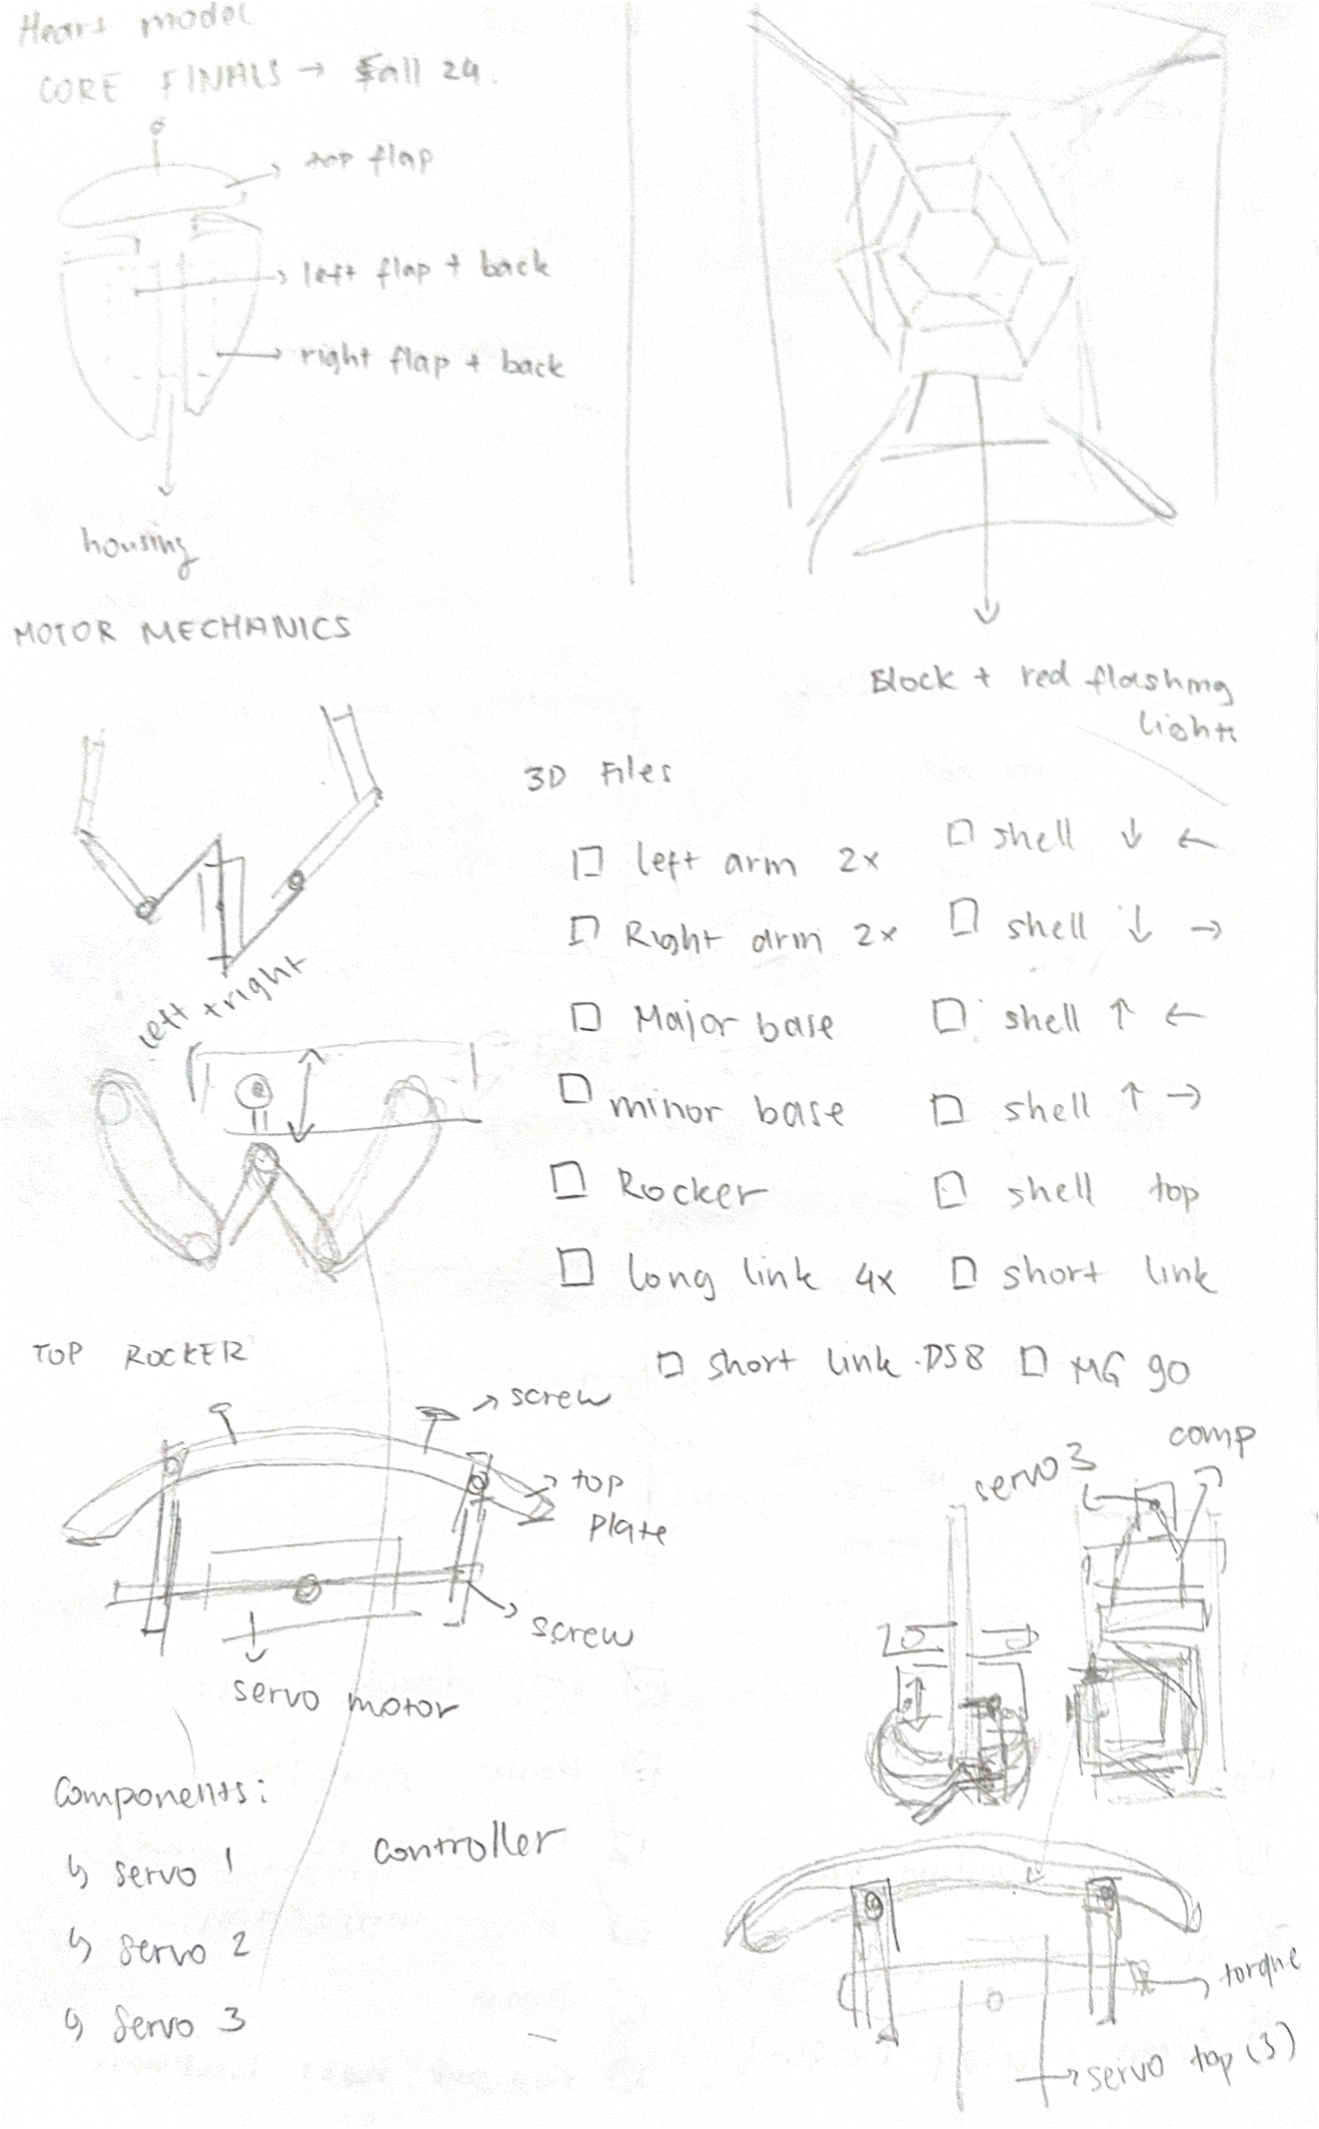 Heart model
CORE FINALS → Fall 24.
top flap
left flap + back
right flap + back
housing
Block + red flashing
lights
MOTOR MECHANICS
left + right
3D Files
□ left arm 2x
□ Right arm 2x
□ Major base
□ minor base
□ Rocker
□ long link 4x
□ shell ↓ ←
□ shell ↓ →
□ shell ↑ ←
□ shell ↑ →
□ shell top
□ short link
□ short link DS8 □ MG 90
TOP ROCKER
screw
top
plate
screw
servo motor
servo 3
comp
Components:
↳ servo 1
↳ servo 2
↳ servo 3
controller
torque
servo top (3)